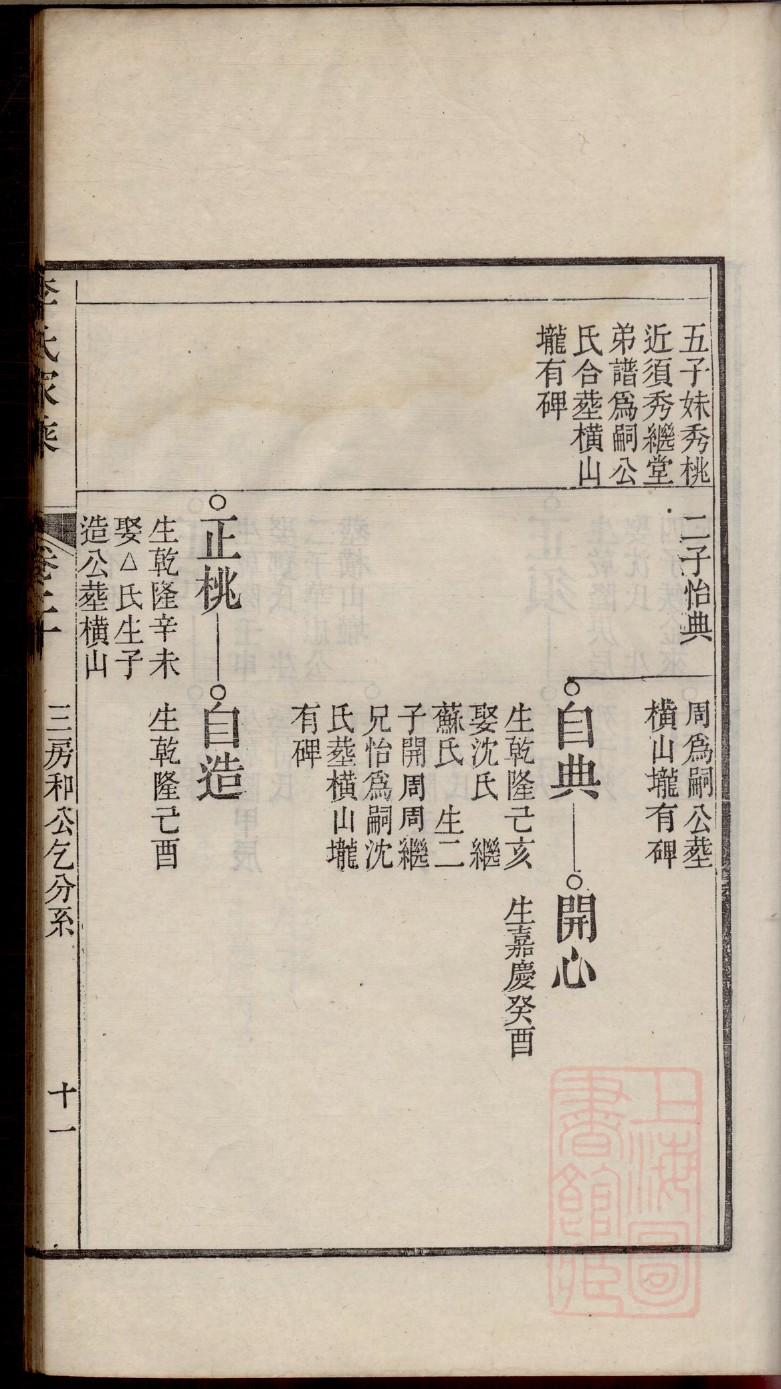 五子妹秀桃
近須秀繼堂
弟譜爲嗣公
氏合塟橫山
壠有碑
二子怡典
周爲嗣公塟
橫山壠有碑
自典
生乾隆己亥
娶沈氏 繼
蘇氏 生二
子開周周繼
兄怡爲嗣沈
氏塟橫山壠
有碑
開心
生嘉慶癸酉
正桃
生乾隆辛未
娶△氏生子
造公塟橫山
自造
生乾隆己酉
李氏家乘
卷二十
三房和公乞分系
十一
上海圖
書館藏